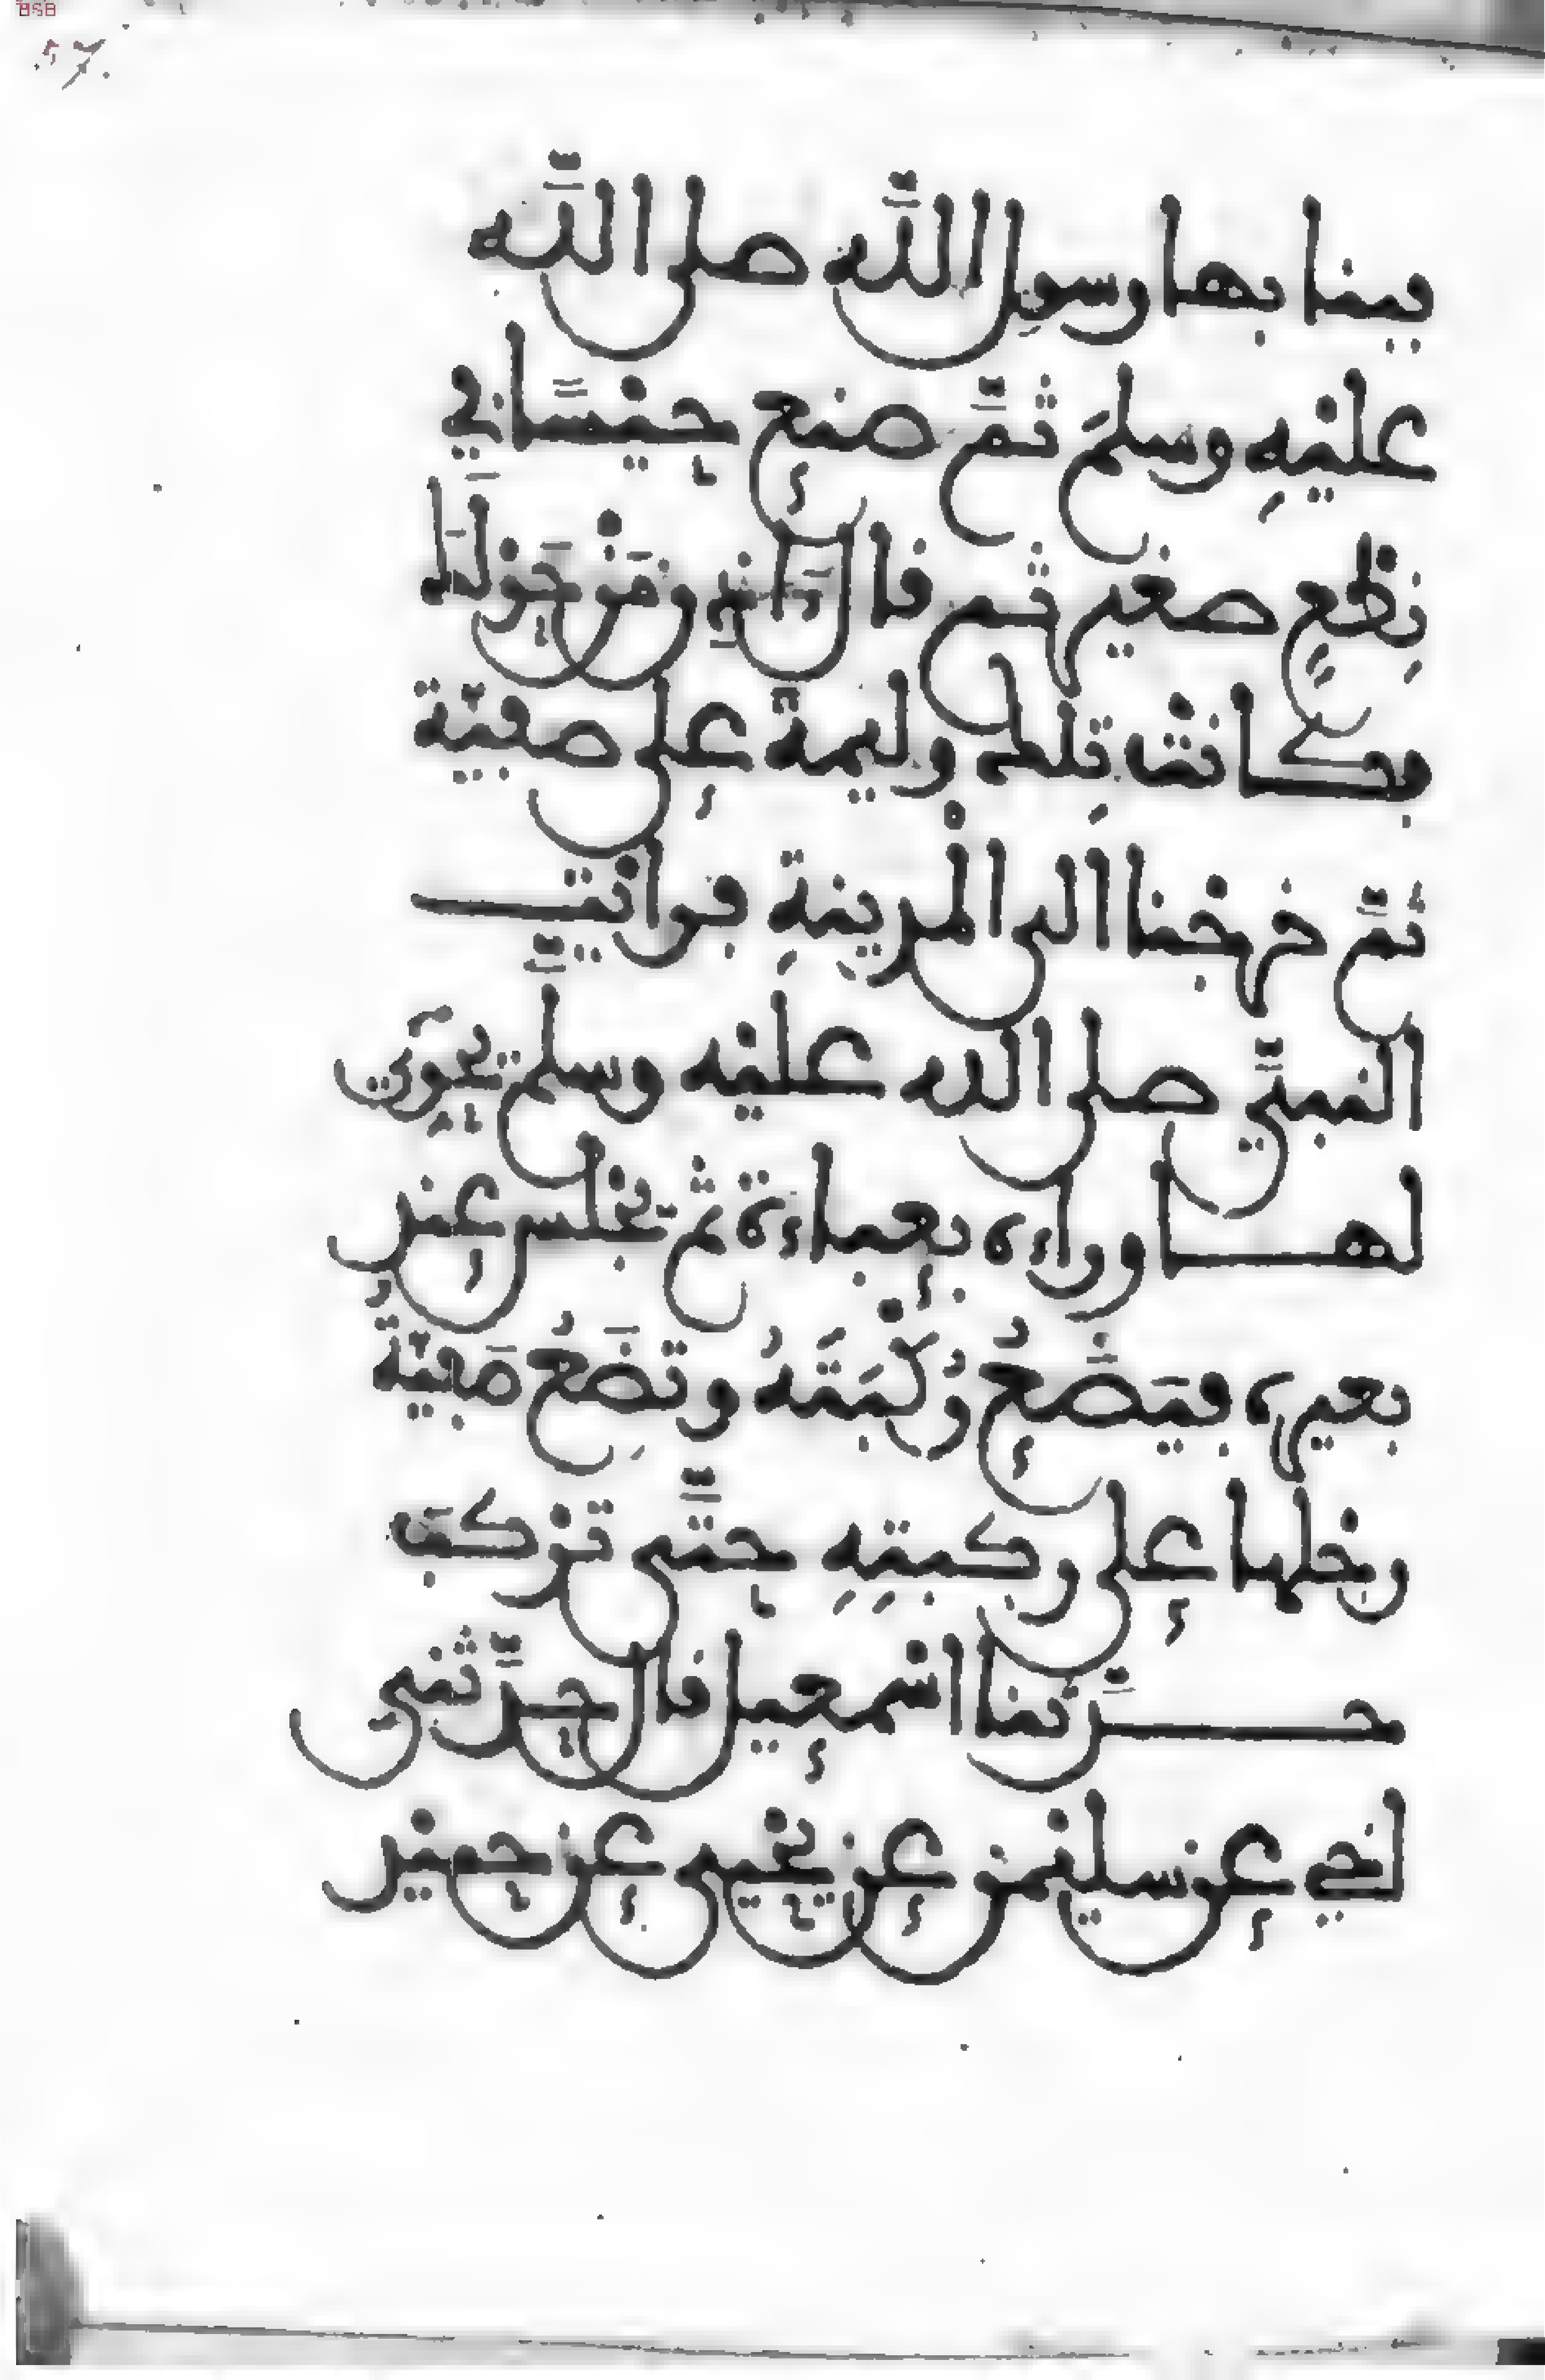 57.
يبنا بها رسول اللّه صلى اللّه
عليْهِ وسلمَ ثمَّ صنع حيْسًا في
نِطْعٍ صغير ثم قال ءَاذِنْ مَنْ حَوْلَكَ
فكانتْ تِلك وليمةَ على صفيّة
ثمَّ خرجْنا الى الْمدينةِ فرأيْتُ
النبيَّ صلى الله عليْه وسلَّم يُحَوِّي
لها وراءه بعباءة ثم يجْلس عند
بعيره فيَضَعُ رُكْبَتَهُ وتَضَعُ صَفيّةُ
رجلها على ركبتِهِ حتَّى ترْكبَ
حدَّثنا اسْمعيل قال حدَّثني
أخي عن سليْمن عن يحْيى عن حميْد